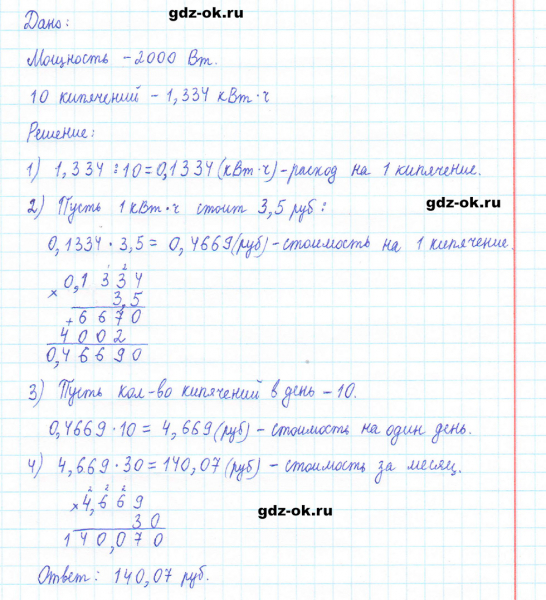 gdz-ok.ru
Дано:
Мощность - 2000 Вт.
10 кипячений - 1,334 кВт·ч
Решение:
1) 1,334 : 10 = 0,1334 (кВт·ч) - расход на 1 кипячение.
2) Пусть 1 кВт·ч стоит 3,5 руб:
gdz-ok.ru
0,1334 · 3,5 = 0,4669 (руб) - стоимость на 1 кипячение.
1 2
0,1334
× 3,5
+ 6670
4002
0,46690
3) Пусть кол-во кипячений в день - 10.
0,4669 · 10 = 4,669 (руб) - стоимость на один день.
4) 4,669 · 30 = 140,07 (руб) - стоимость за месяц.
2 2 2
× 4,669
30
140,070
gdz-ok.ru
Ответ: 140,07 руб.